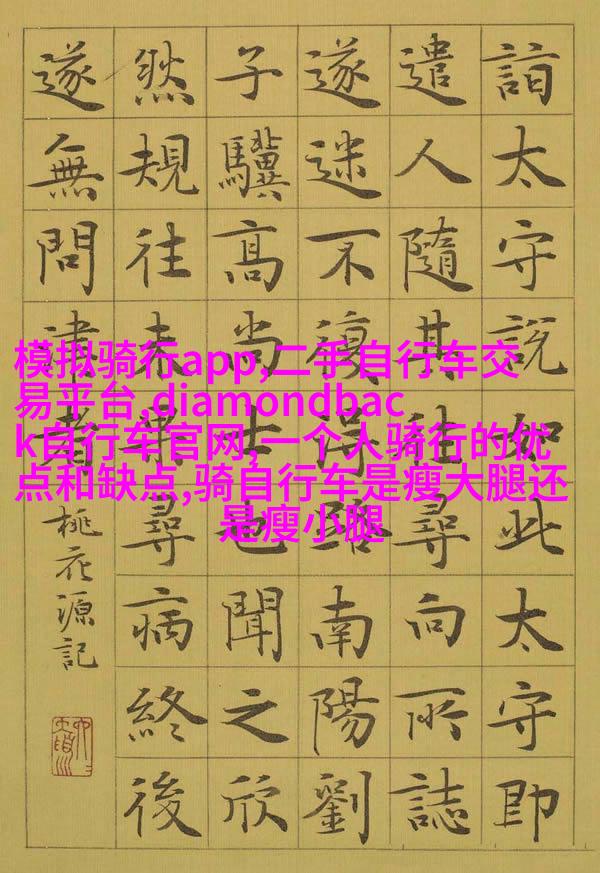 詣太守說如此太守即
遣人隨其往尋向所誌
遂迷不復得路南陽劉
子驥高尚士也聞之欣
然規往未果尋病終後
遂無問津者
桃花源記
模拟骑行app,二手自行车交
易平台,diamondbac
k自行车官网,一个人骑行的优
点和缺点,骑自行车是瘦大腿还
是瘦小腿